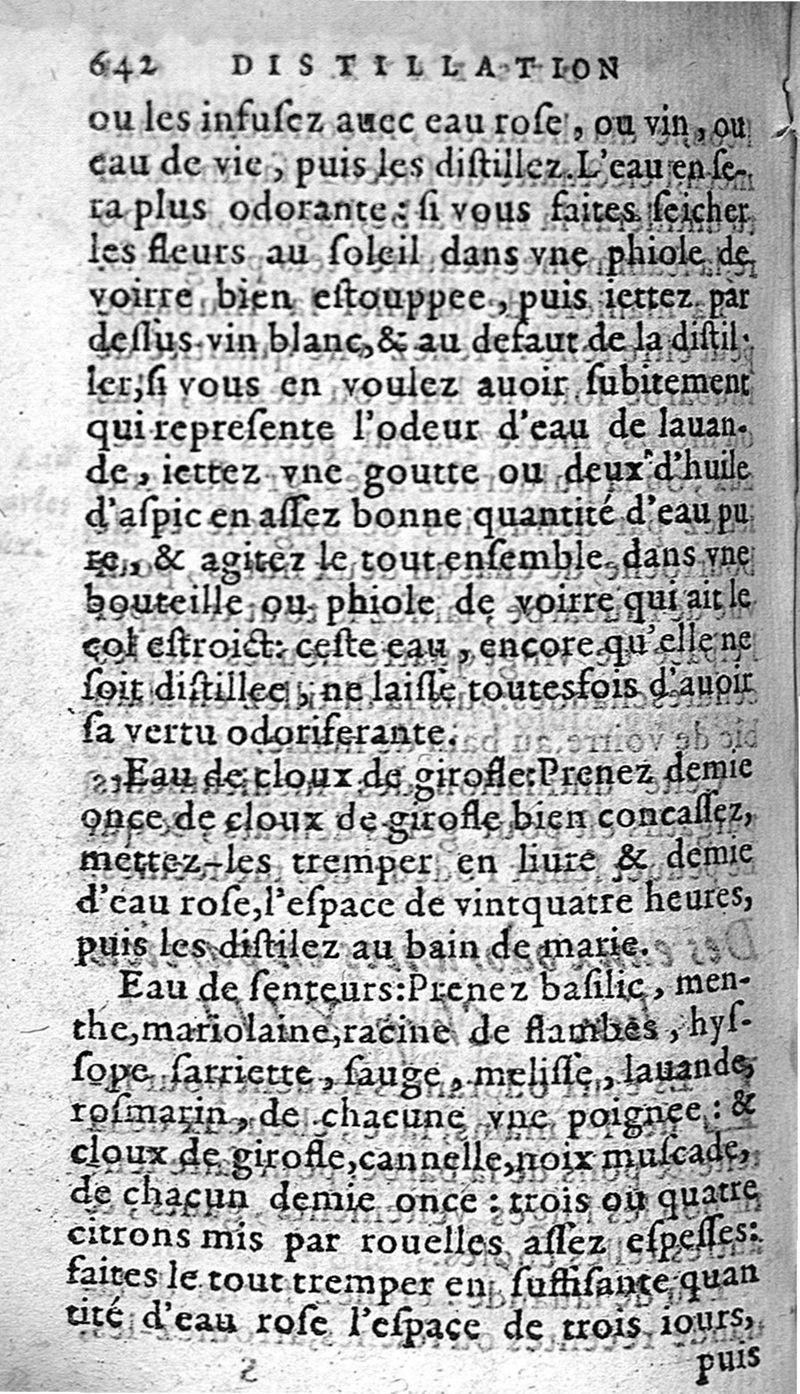 642 DISTILLATION
ou les infusez auec eau rose, ou vin, ou
eau de vie, puis les distillez. L'eau en se-
ra plus odorante: si vous faites seicher
les fleurs au soleil dans vne phiole de
voirre bien estouppee, puis iettez par
dessus vin blanc, & au defaut de la distil-
ler, si vous en voulez auoir subitement
qui represente l'odeur d'eau de lauan-
de, iettez vne goutte ou deux d'huile
d'aspic en assez bonne quantité d'eau pu
re, & agitez le tout ensemble dans vne
bouteille ou phiole de voirre qui ait le
col estroict: ceste eau, encore qu'elle ne
soit distillee, ne laisse toutesfois d'auoir
sa vertu odoriferante.
Eau de cloux de girofle: Prenez demie
once de cloux de girofle bien concassez,
mettez-les tremper en liure & demie
d'eau rose, l'espace de vintquatre heures,
puis les distilez au bain de marie.
Eau de senteurs: Prenez basilic, men-
the, mariolaine, racine de flambes, hys-
sope sarriette, sauge, melisse, lauande,
rosmarin, de chacune vne poignee: &
cloux de girofle, cannelle, noix muscade,
de chacun demie once: trois ou quatre
citrons mis par rouelles assez espesses:
faites le tout tremper en suffisante quan
tité d'eau rose l'espace de trois iours,
puis